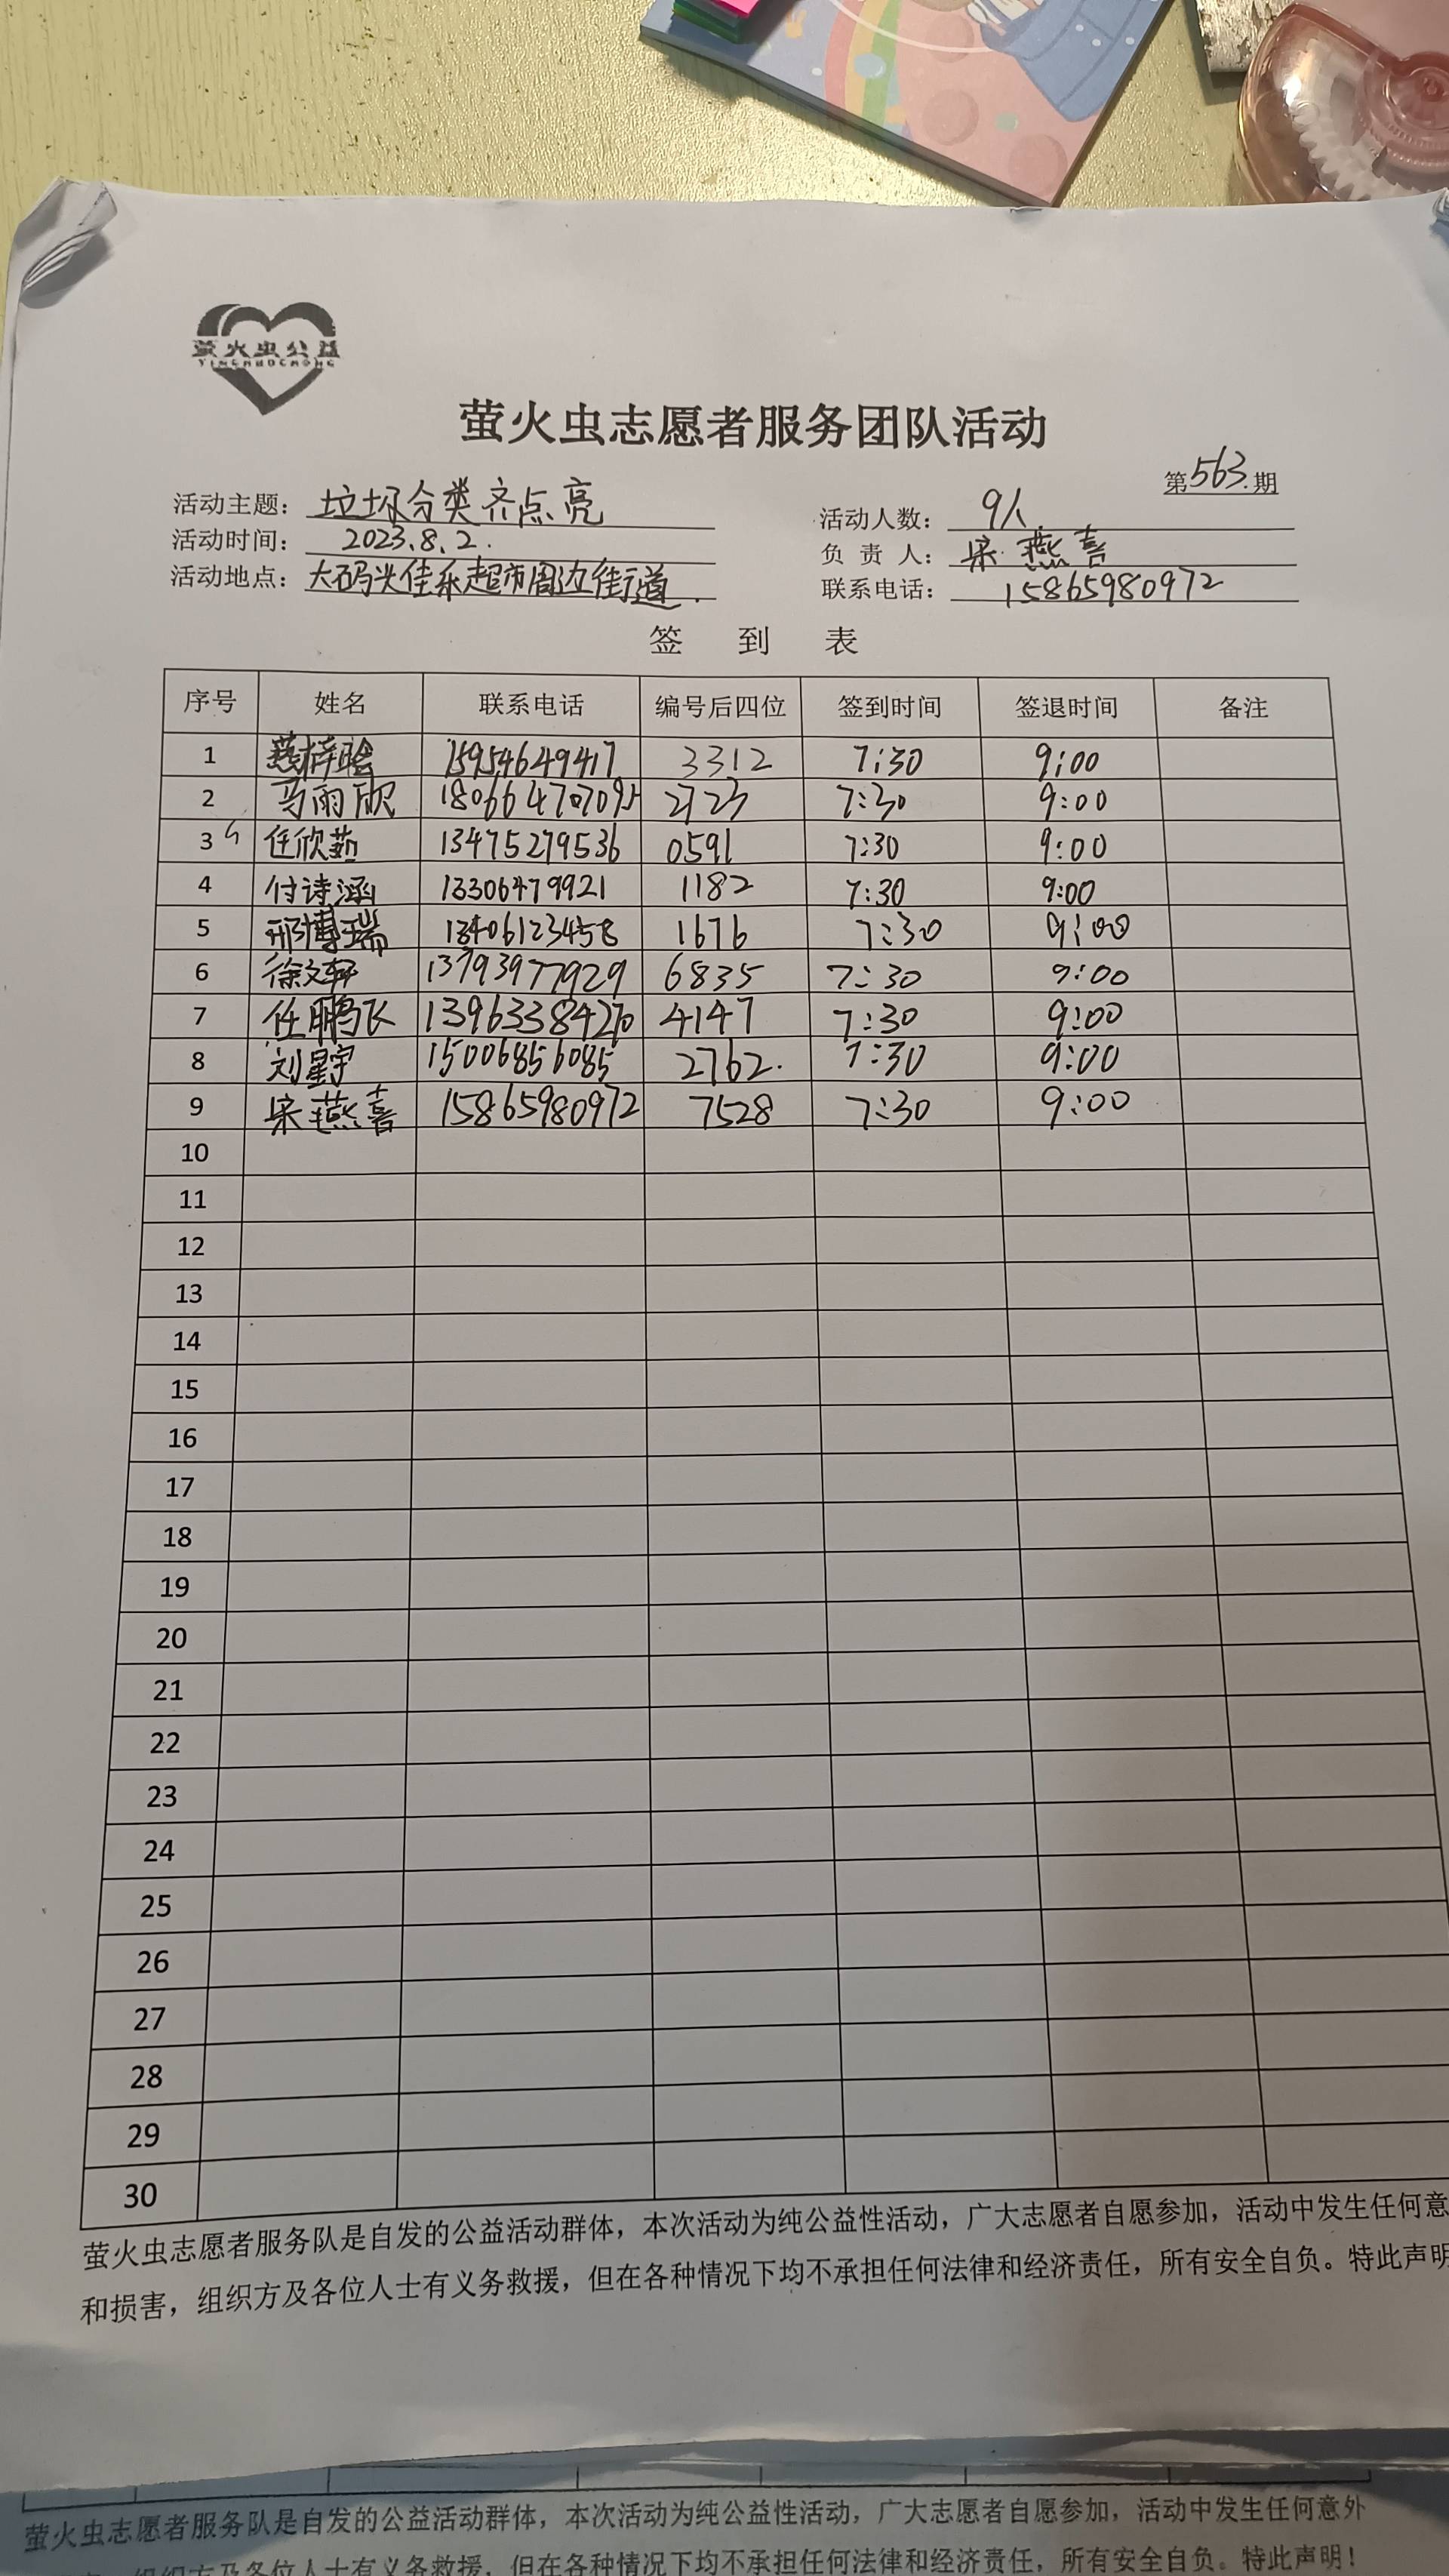 萤火虫公益
YINGHUOCHONG
萤火虫志愿者服务团队活动
第563.期
活动主题：垃圾分类齐点亮 活动人数：9人.
活动时间：2023.8.2. 负 责 人：宋燕喜
活动地点：大码头佳乐超市周边街道. 联系电话：15865980972
签 到 表
序号 姓名 联系电话 编号后四位 签到时间 签退时间 备注
1 15954649417 3312 7:30 9:00
2 马雨欣 2723 7:30 9:00
3 任欣茹 13475279536 0591 7:30 9:00
4 付诗涵 13306479921 1182 7:30 9:00
5 邢博瑞 13406123458 1676 7:30 9:00
6 徐文轩 13793977929 6835 7:30 9:00
7 任鹏飞 13963384270 4147 7:30 9:00
8 刘星宇 15006856085 2762. 7:30 9:00
9 宋燕喜 15865980972 7528 7:30 9:00
10
11
12
13
14
15
16
17
18
19
20
21
22
23
24
25
26
27
28
29
30
萤火虫志愿者服务队是自发的公益活动群体，本次活动为纯公益性活动，广大志愿者自愿参加，活动中发生任何意
和损害，组织方及各位人士有义务救援，但在各种情况下均不承担任何法律和经济责任，所有安全自负。特此声明
萤火虫志愿者服务队是自发的公益活动群体，本次活动为纯公益性活动，广大志愿者自愿参加，活动中发生任何意外
组织方及各位人士有义务救援，但在各种情况下均不承担任何法律和经济责任，所有安全自负。特此声明！